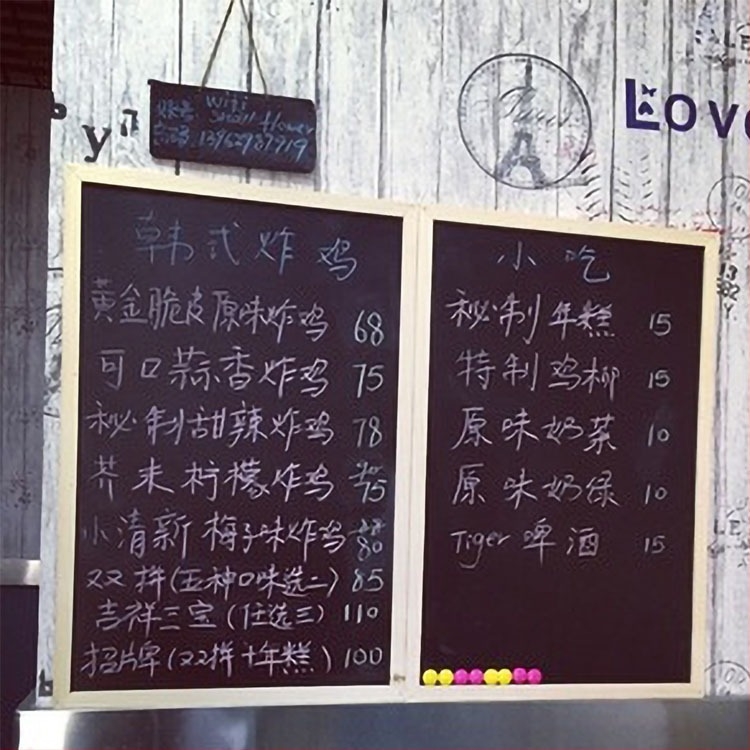 wifi
账号 small flower
密码 13962987919
Paris
Love
韩式炸鸡
黄金脆皮原味炸鸡 68
可口蒜香炸鸡 75
秘制甜辣炸鸡 78
芥末柠檬炸鸡 75
小清新梅子味炸鸡 80
双拼(五种口味选二) 85
吉祥三宝(任选三) 110
招牌(双拼+年糕) 100
小吃
秘制年糕 15
特制鸡柳 15
原味奶茶 10
原味奶绿 10
Tiger 啤酒 15